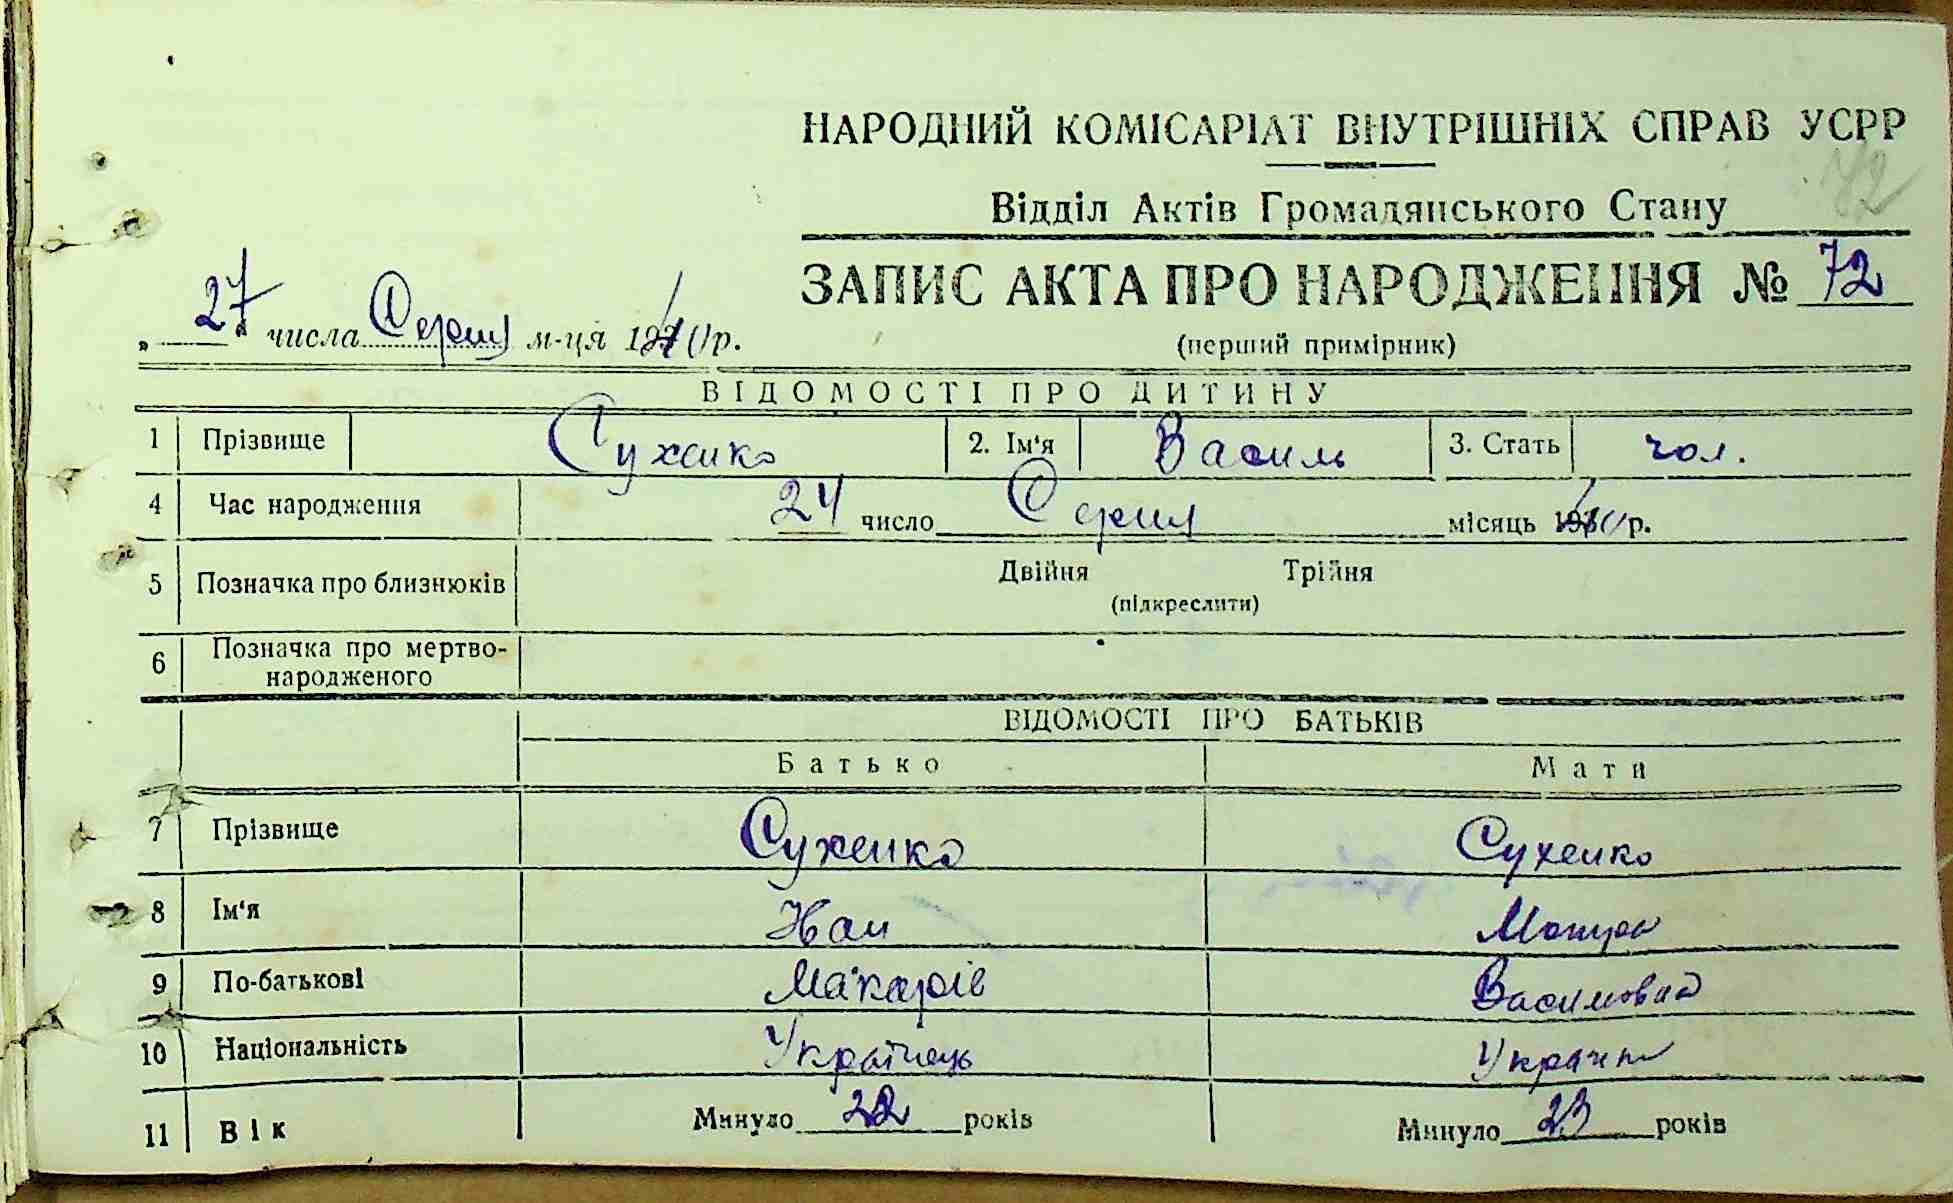 НАРОДНИЙ КОМІСАРІАТ ВНУТРІШНІХ СПРАВ УСРР
72
Відділ Актів Громадянського Стану
ЗАПИС АКТА ПРО НАРОДЖЕННЯ № 72
„ 27 числа Серпня м-ця р.
(перший примірник)
ВІДОМОСТІ ПРО ДИТИНУ
1 Прізвище Сухенко 2. Ім'я Василь 3. Стать чол.
4 Час народження 24 число Серпня місяць р.
5 Позначка про близнюків Двійня Трійня
(підкреслити)
6 Позначка про мертво-
народженого
ВІДОМОСТІ ПРО БАТЬКІВ
Батько Мати
7 Прізвище Сухенко Сухенко
8 Ім'я
9 По-батькові Макарів Василовна
10 Національність Українець
11 Вік Минуло 22 років Минуло 23 років